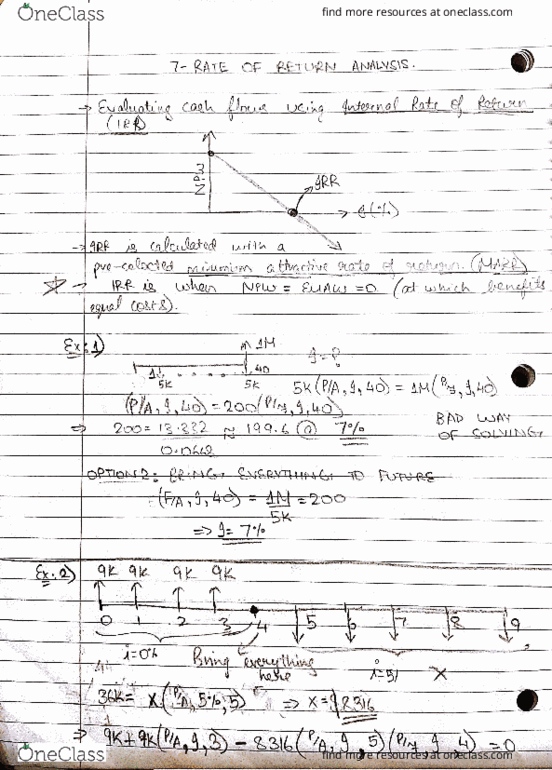 OneClass
find more resources at oneclass.com
7- RATE OF RETURN ANALYSIS.
→ Evaluating cash flows using Internal Rate of Return
(IRR)
NPW
IRR
I(%)
→ IRR is calculated with a
pre-selected minimum attractive rate of return. (MARR)
→ IRR is when NPW = EUAW = 0 (at which benefits
equal costs).
Ex: 1)
1M
I = ?
1 40
5K 5K
5K (P/A, I, 40) = 1M (P/F, I, 40)
(P/A, I, 40) = 200 (P/F, I, 40)
BAD WAY
OF SOLVING
⇒ 200 = 13.332 ≈ 199.6 @ 7%
0.0668
OPTION 2: BRING EVERYTHING TO FUTURE
(F/A, I, 40) = 1M = 200
5K
⇒ I = 7%
Ex. 2) 9K 9K 9K 9K
0 1 2 3 4 5 6 7 8 9
i=0% Bring everything
here
i=5% X
36K = X (P/A, 5%, 5) ⇒ X = $8316
⇒ 9K + 9K (P/A, I, 3) - 8316 (P/A, I, 5) (P/F, I, 4) = 0
OneClass
find more resources at oneclass.com